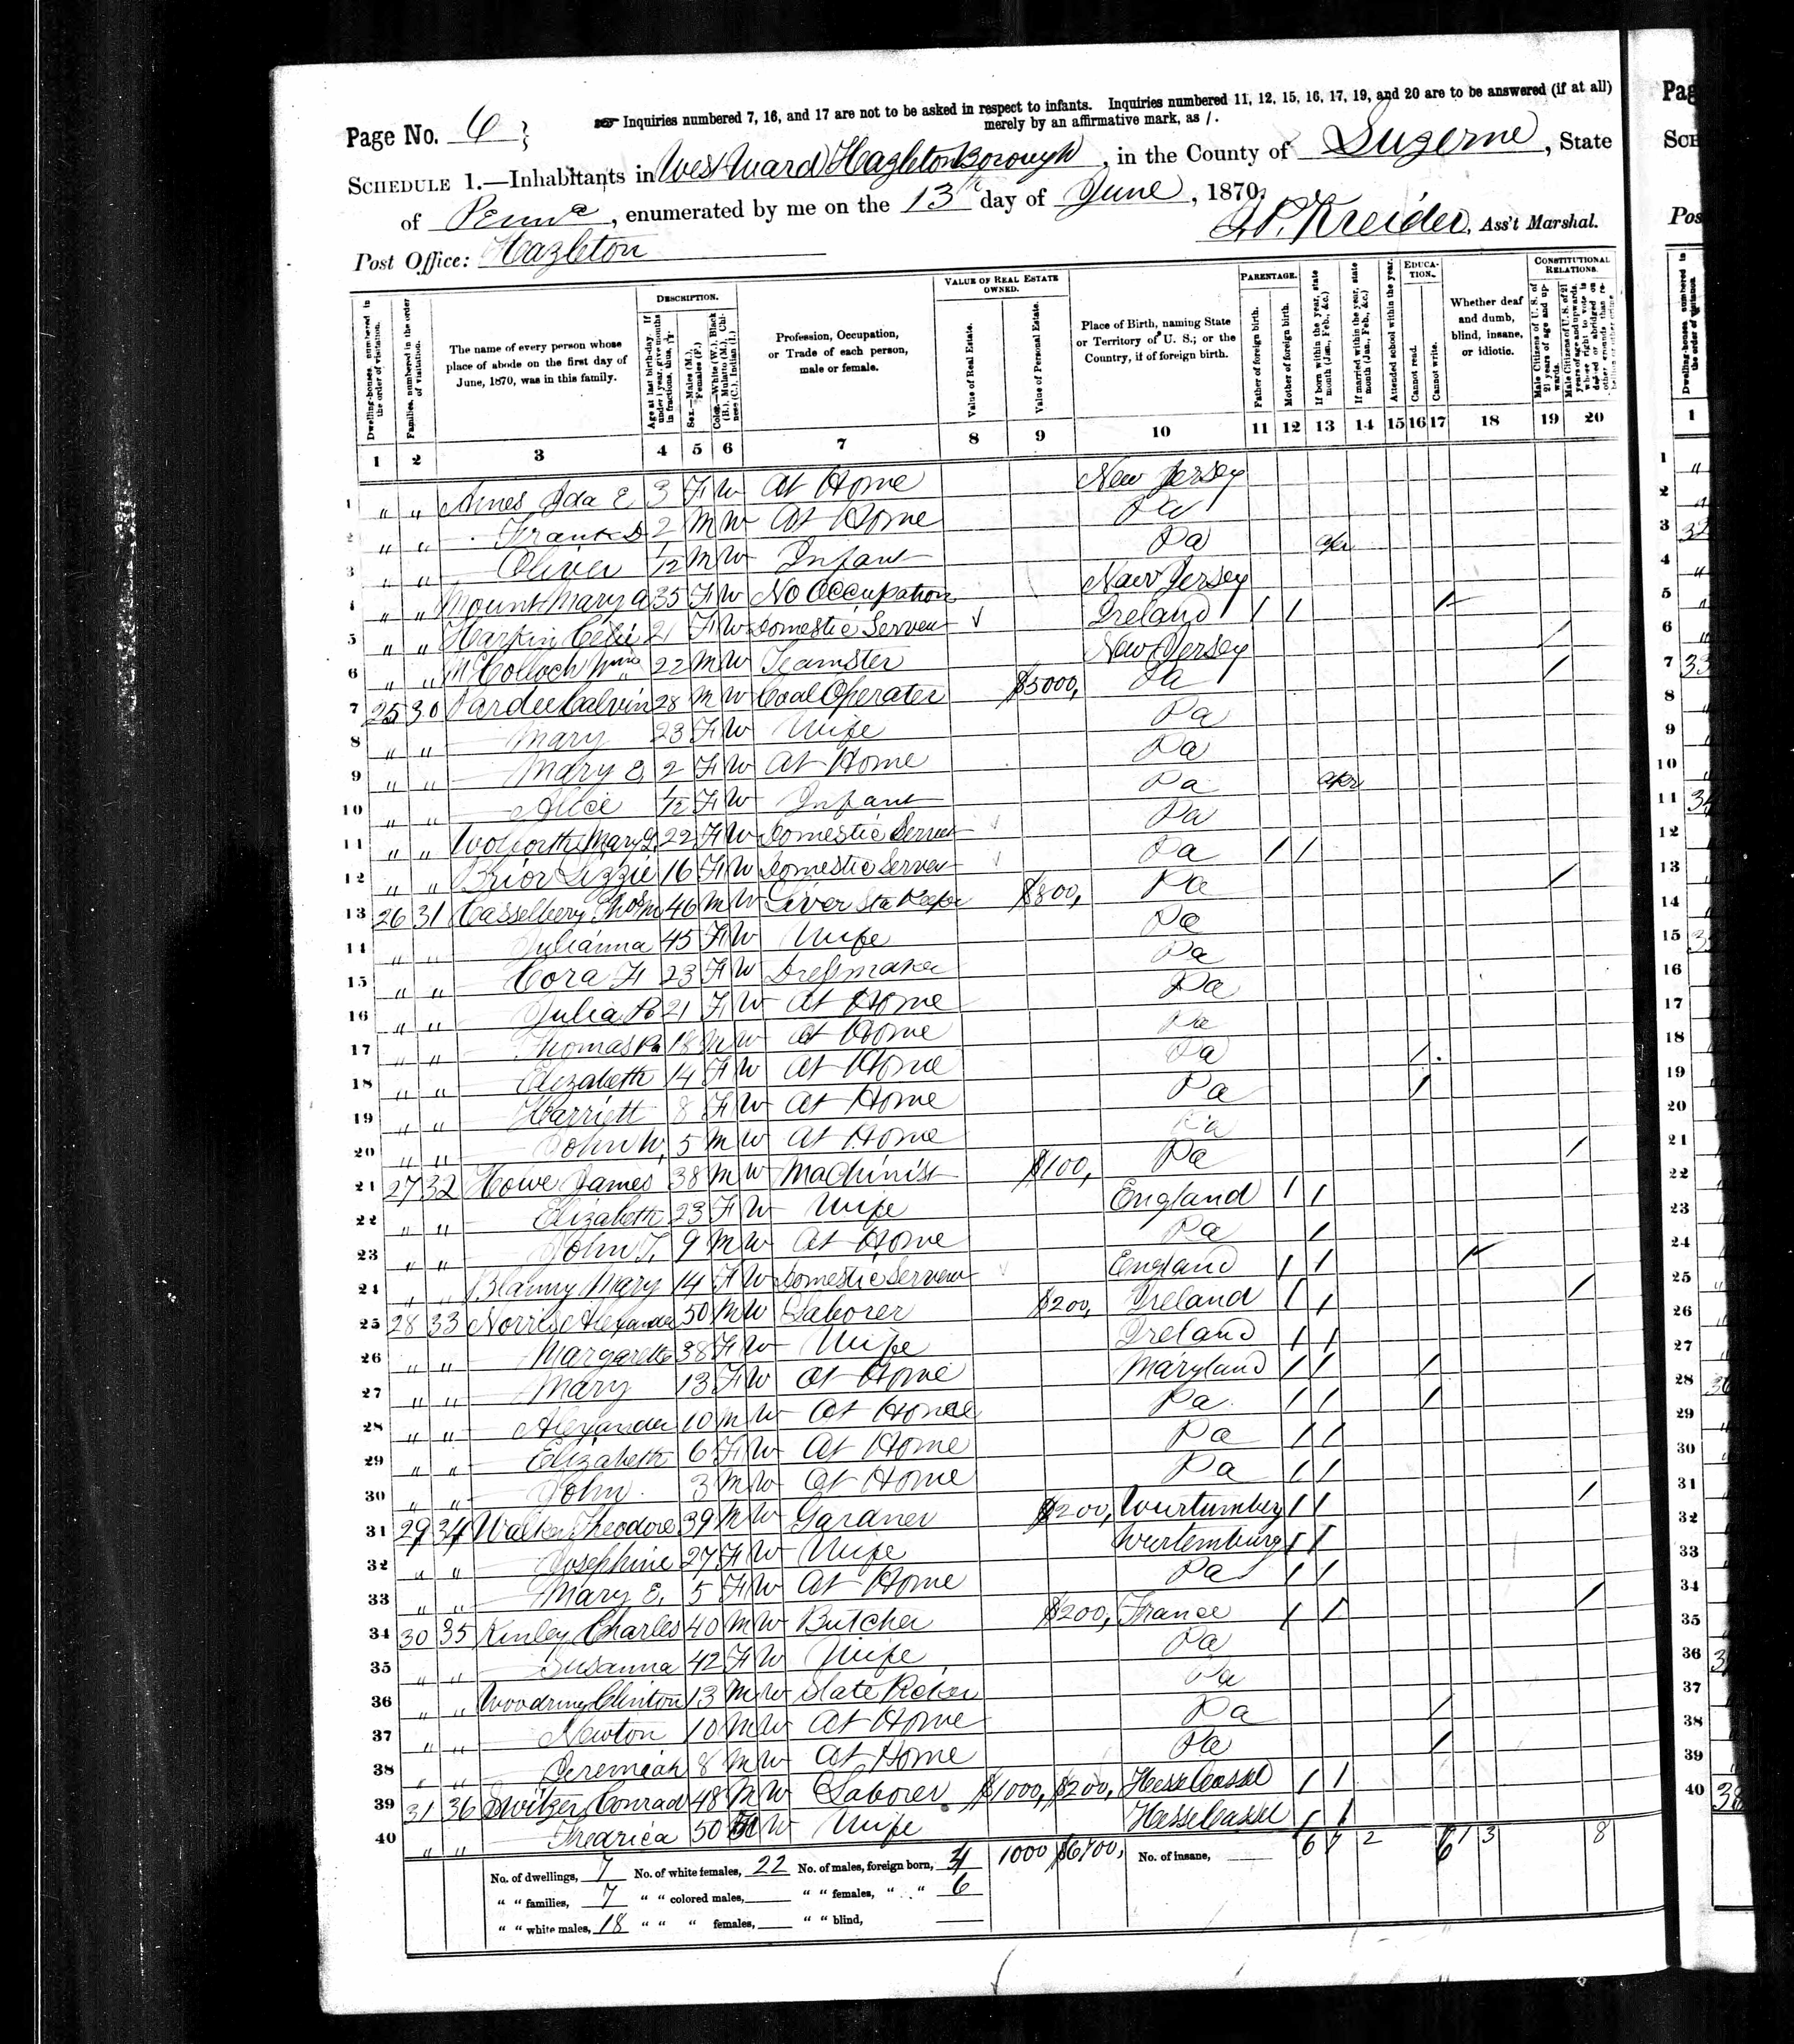 Page No. 6
☞ Inquiries numbered 7, 16, and 17 are not to be asked in respect to infants. Inquiries numbered 11, 12, 15, 16, 17, 19, and 20 are to be answered (if at all)
merely by an affirmative mark, as /.
SCHEDULE 1.—Inhabitants in West Ward Hazleton Borough, in the County of Luzerne, State
of Penna, enumerated by me on the 13th day of June, 1870.
Post Office: Hazleton
Kreider, Ass't Marshal.
DESCRIPTION. VALUE OF REAL ESTATE OWNED. PARENTAGE. EDUCATION. CONSTITUTIONAL RELATIONS.
Dwelling-houses, numbered in the order of visitation.
Families, numbered in the order of visitation.
The name of every person whose place of abode on the first day of June, 1870, was in this family.
Age at last birth-day. If under 1 year, give months in fractions, thus, 3/12
Sex.—Males (M.), Females (F.)
Color.—White (W.), Black (B.), Mulatto (M.), Chinese (C.), Indian (I.)
Profession, Occupation, or Trade of each person, male or female.
Value of Real Estate.
Value of Personal Estate.
Place of Birth, naming State or Territory of U. S.; or the Country, if of foreign birth.
Father of foreign birth.
Mother of foreign birth.
If born within the year, state month (Jan., Feb., &c.)
If married within the year, state month (Jan., Feb., &c.)
Attended school within the year.
Cannot read.
Cannot write.
Whether deaf and dumb, blind, insane, or idiotic.
Male Citizens of U. S. of 21 years of age and upwards.
Male Citizens of U. S. of 21 years of age and upwards, whose right to vote is denied or abridged on other grounds than rebellion or other crime.
1 2 3 4 5 6 7 8 9 10 11 12 13 14 15 16 17 18 19 20
1 " " Ames Ida E 3 F W At Home New Jersey
2 " " Frank D 2 M W At Home Pa
3 " " Oliver 1/12 M W Infant Pa Apr
4 " " Mount Mary A 35 F W No Occupation New Jersey
5 " " Harkin 21 F W Domestic Servent Ireland / / /
6 " " McColloch Wm 22 M W Teamster New Jersey /
7 25 30 Pardee Calvin 28 M W Coal Operater $5000, Pa /
8 " " Mary 23 F W Wife Pa
9 " " Mary E 2 F W At Home Pa
10 " " Alice 1/12 F W Infant Pa Apr
11 " " Mary 22 F W Domestic Servent Pa
12 " " Brior Lizzie 16 F W Domestic Servent Pa / /
13 26 31 Casselbery Thos M 46 M W Liver Sta Keeper $800, Pa /
14 " " Julianna 45 F W Wife Pa
15 " " Cora F 23 F W Dressmaker Pa
16 " " Julia 21 F W At Home Pa
17 " " Thomas 18 M W At Home Pa
18 " " Elizabeth 14 F W At Home Pa /
19 " " Harriett 8 F W At Home Pa /
20 " " John W, 5 M W At Home Pa
21 27 32 Howe James 38 M W Machinist $100, Pa /
22 " " Elizabeth 23 F W Wife England / /
23 " " John T, 9 M W At Home Pa /
24 " " Mary 14 F W Domestic Servent England / / /
25 28 33 Norris Alexander 50 M W Laborer $200, Ireland / / /
26 " " Margarette 38 F W Wife Ireland / /
27 " " Mary 13 F W At Home Maryland / / /
28 " " Alexander 10 M W At Home Pa / / /
29 " " Elizabeth 6 F W At Home Pa / /
30 " " John 3 M W At Home Pa / /
31 29 34 Walker Theodore 39 M W Gardner $200, Wurtumberg / / /
32 " " Josephine 27 F W Wife Wurtemburg / /
33 " " Mary E. 5 F W At Home Pa / /
34 30 35 Kinley Charles 40 M W Butcher $200, France / / /
35 " " Susanna 42 F W Wife Pa
36 " " Woodring Clinton 13 M W Slate Picker Pa
37 " " Newton 10 M W At Home Pa /
38 " " Jeremiah 8 M W At Home Pa /
39 31 36 Switzer Conrad 48 M W Laborer $1000, $200, Hesse Cassel / /
40 " " Fredrica 50 F W Wife Hesse Cassel / /
No. of dwellings, 7 No. of white females, 22 No. of males, foreign born, 4 1000 $6700, No. of insane, 8
" " families, 7 " " colored males, " " females, " " 6
" " white males, 18 " " " females, " " blind,